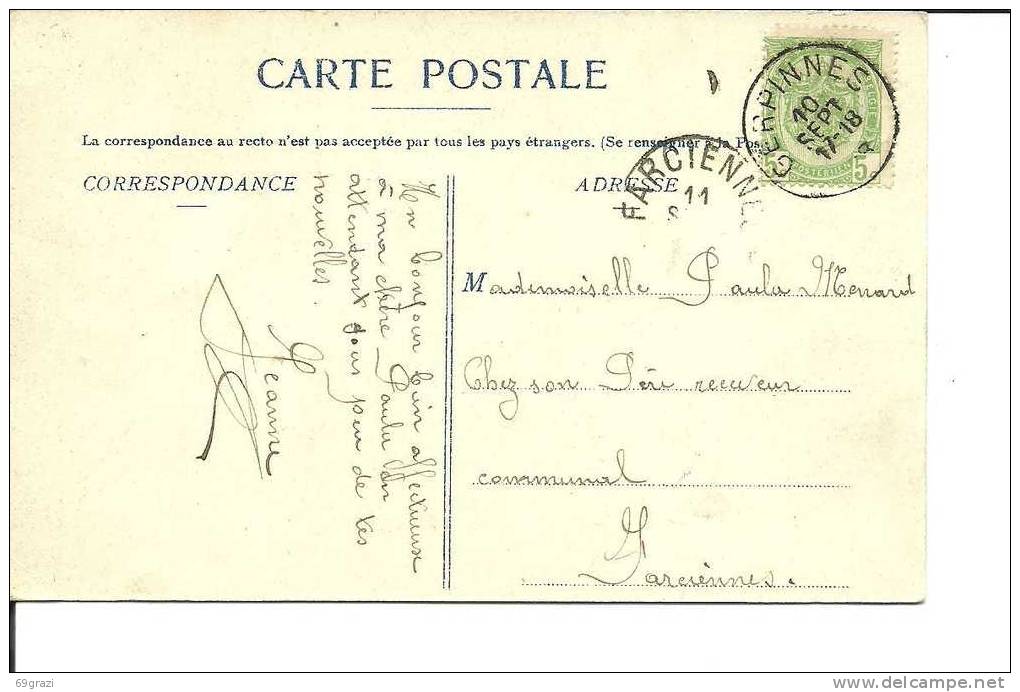 CARTE POSTALE
La correspondance au recto n'est pas acceptée par tous les pays étrangers. (Se renseigner à la Pos
CORRESPONDANCE
ADRESSE
GERPINNES
10
SEPT
17-18
5
5
FARCIENNE
11
S
Un bonjour bien affectueuse
à ma chère Paula en
attendant tous peu de tes
nouvelles.
Jeanne
Mademoiselle Paula Menard
Chez son Père receveur
communal
Farciennes.
69grazi
delcampe.net